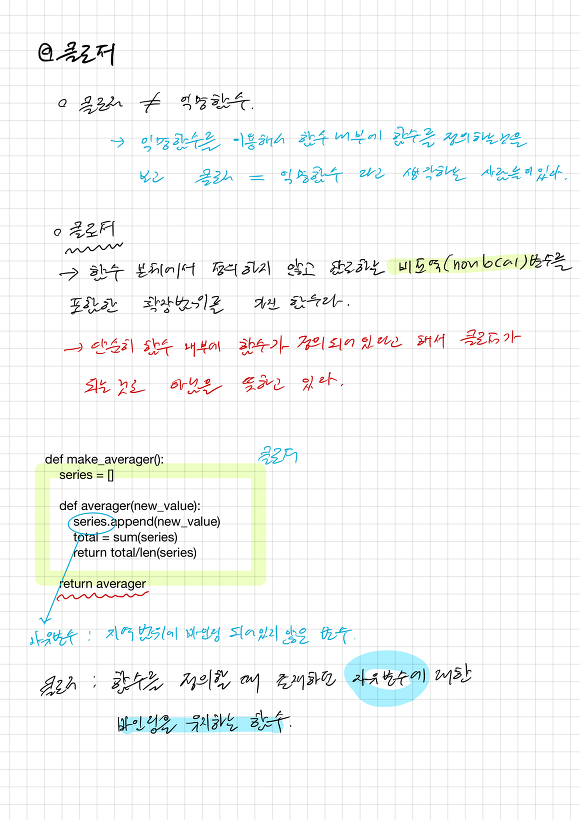 @ 클로저
○ 클로저 ≠ 익명함수.
→ 익명함수를 이용해서 함수 내부에 함수를 정의하는것을
보고 클로저 = 익명함수 라고 생각하는 사람들이있다.
○ 클로저
→ 함수 본체에서 정의하지 않고 참조하는 비전역(nonlocal)변수를
포함한 확장범위를 가진 함수다.
→ 단순히 함수 내부에 함수가 정의되어있다고 해서 클로저가
되는것은 아님을 뜻하고 있다.
def make_averager(): 클로저
series = []
def averager(new_value):
series.append(new_value)
total = sum(series)
return total/len(series)
return averager
자유변수 : 지역범위에 바인딩 되어있지 않은 변수.
클로저 : 함수를 정의할 때 존재하던 자유변수에 대한
바인딩을 유지하는 함수.